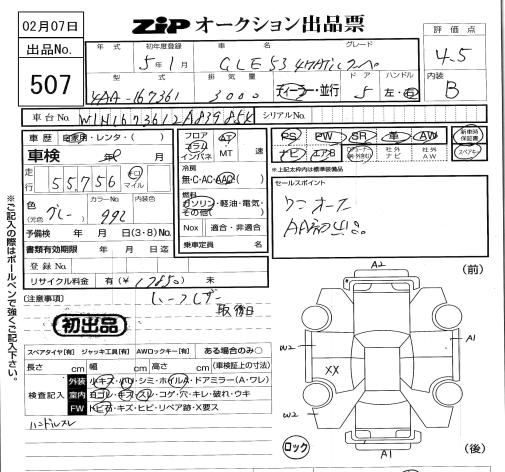 02月07日
ZiP オークション出品票
評価点
4.5
内装
B
出品No.
507
年式 初年度登録 車名 グレード
5年1月 GLE53 4マチック
型式 排気量 ドア ハンドル
4AA-167361 3000 ディーラー・並行 5 左・右
車台No. W1N1673612A839856 シリアルNo.
車歴 自家用・レンタ・( )
車検 年 月
走行 55756 キロ マイル
色 (元色) グレー カラーNo. 992 内装色
予備検 年 月 日(3・8)No.
書類有効期限 年 月 日迄
登録No.
リサイクル料金 有(¥17850) 未
フロア コラム インパネ AT MT 速
冷房 無・C・AC・AAC
燃料 ガソリン・軽油・電気・その他( )
Nox 適合・非適合
乗車定員 名
PS PW SR 革 AW
ナビ エアB 社外ナビ 社外AW
新車時保証書
スペアキー
*上記太枠内は標準装備品
セールスポイント
ワンオーナー
AA初出品
(注意事項)
初出品
スペアタイヤ[有] ジャッキ工具[有] AWロックキー[有] ある場合のみ○
長さ cm 幅 cm 高さ cm (車検証上の寸法)
検査記入
外装 小キズ・凹・シミ・ホイルA・ドアミラー(A・ワレ)
室内 ヨゴレ・キズ・スレ・コゲ・穴・キレ・破れ・ウキ
FW トビ石・キズ・ヒビ・リペア跡・X要ス
ハンドルスレ
※ご記入の際はボールペンで強くご記入下さい。
A2
(前)
W2
A1
XX
W2
ロック
A1
(後)